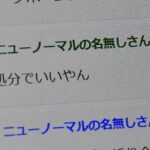 ニューノーマルの名無しさん
処分でいいやん
ニューノーマルの名無しさん